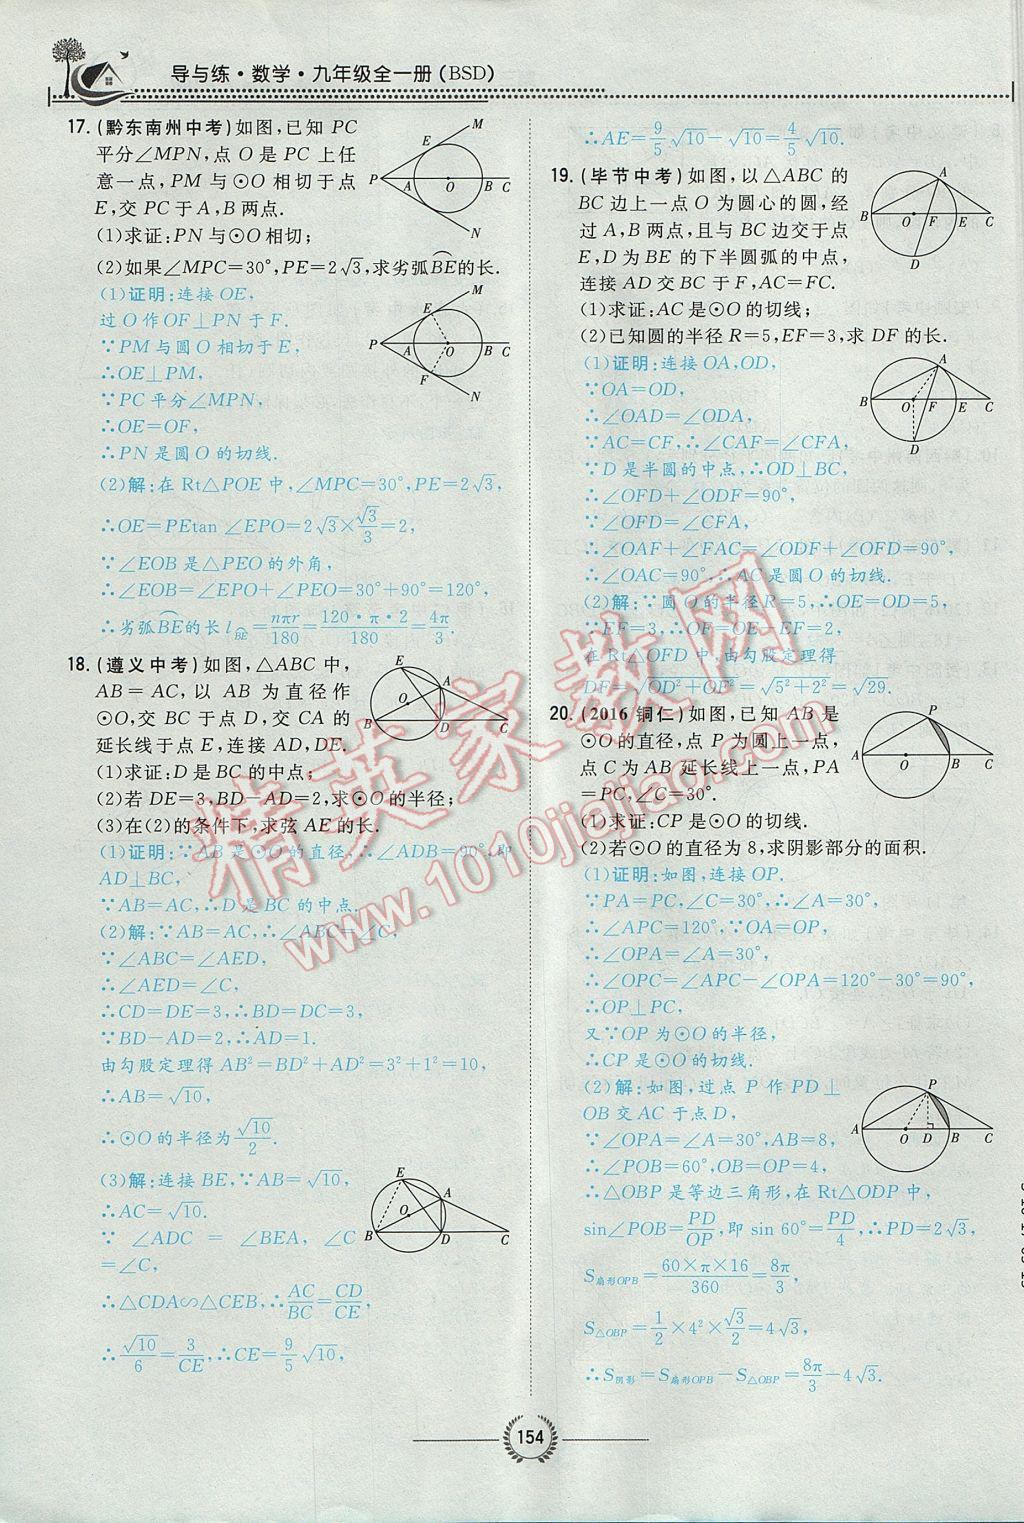 导与练·数学·九年级全一册(BSD)
17. (黔东南州中考)如图,已知 PC
平分∠MPN,点 O 是 PC 上任
意一点,PM 与⊙O 相切于点
E,交 PC 于 A,B 两点.
(1)求证:PN 与⊙O 相切;
(2)如果∠MPC=30°,PE=2√3,求劣弧BE的长.
(1)证明:连接 OE,
过 O 作 OF⊥PN 于 F.
∵PM 与圆 O 相切于 E,
∴OE⊥PM,
∵PC 平分∠MPN,
∴OE=OF,
∴PN 是圆 O 的切线.
(2)解:在 Rt△POE 中,∠MPC=30°,PE=2√3,
∴OE=PEtan ∠EPO=2√3×√3/3=2,
∵∠EOB 是△PEO 的外角,
∴∠EOB=∠EPO+∠PEO=30°+90°=120°,
∴劣弧BE的长 l BE=nπr/180=120·π·2/180=4π/3.
18. (遵义中考)如图,△ABC 中,
AB=AC,以 AB 为直径作
⊙O,交 BC 于点 D,交 CA 的
延长线于点 E,连接 AD,DE.
(1)求证:D 是 BC 的中点;
(2)若 DE=3,BD-AD=2,求⊙O 的半径;
(3)在(2)的条件下,求弦 AE 的长.
(1)证明:∵AB 是⊙O 的直径,∴∠ADB=90°,即
AD⊥BC,
∵AB=AC,∴D 是 BC 的中点.
(2)解:∵AB=AC,∴∠ABC=∠C,
∵∠ABC=∠AED,
∴∠AED=∠C,
∴CD=DE=3,∴BD=DC=3,
∵BD-AD=2,∴AD=1.
由勾股定理得 AB²=BD²+AD²=3²+1²=10,
∴AB=√10,
∴⊙O 的半径为√10/2.
(3)解:连接 BE,∵AB=√10,
∴AC=√10.
∵ ∠ADC = ∠BEA, ∠C
=∠C,
∴△CDA∽△CEB,∴AC/BC=CD/CE,
∴√10/6=3/CE,∴CE=9/5√10,
∴AE=9/5√10-√10=4/5√10.
19. (毕节中考)如图,以△ABC 的
BC 边上一点 O 为圆心的圆,经
过 A,B 两点,且与 BC 边交于点
E,D 为 BE 的下半圆弧的中点,
连接 AD 交 BC 于 F,AC=FC.
(1)求证:AC 是⊙O 的切线;
(2)已知圆的半径 R=5,EF=3,求 DF 的长.
(1)证明:连接 OA,OD,
∵OA=OD,
∴∠OAD=∠ODA,
∵AC=CF,∴∠CAF=∠CFA,
∵D 是半圆的中点,∴OD⊥BC,
∴∠OFD+∠ODF=90°,
∵∠OFD=∠CFA,
∴∠OAF+∠FAC=∠ODF+∠OFD=90°,
∴∠OAC=90°,∴AC 是圆 O 的切线.
(2)解:∵圆 O 的半径 R=5,∴OE=OD=5,
∵EF=3,∴OF=OE-EF=2,
在 Rt△OFD 中,由勾股定理得
DF=√OD²+OF²=√5²+2²=√29.
20. (2016 铜仁)如图,已知 AB 是
⊙O 的直径,点 P 为圆上一点,
点 C 为 AB 延长线上一点,PA
=PC,∠C=30°.
(1)求证:CP 是⊙O 的切线.
(2)若⊙O 的直径为 8,求阴影部分的面积.
(1)证明:如图,连接 OP.
∵PA=PC,∠C=30°,∴∠A=30°,
∴∠APC=120°,∵OA=OP,
∴∠OPA=∠A=30°,
∴∠OPC=∠APC-∠OPA=120°-30°=90°,
∴OP⊥PC,
又∵OP 为⊙O 的半径,
∴CP 是⊙O 的切线.
(2)解:如图,过点 P 作 PD⊥
OB 交 AC 于点 D,
∵∠OPA=∠A=30°,AB=8,
∴∠POB=60°,OB=OP=4,
∴△OBP 是等边三角形,在 Rt△ODP 中,
sin∠POB=PD/OP,即 sin 60°=PD/4,∴PD=2√3,
S扇形OPB=60×π×16/360=8π/3,
S△OBP=1/2×4²×√3/2=4√3,
∴S阴影=S扇形OPB-S△OBP=8π/3-4√3.
154
精英家教网
www.1010jiajiao.com